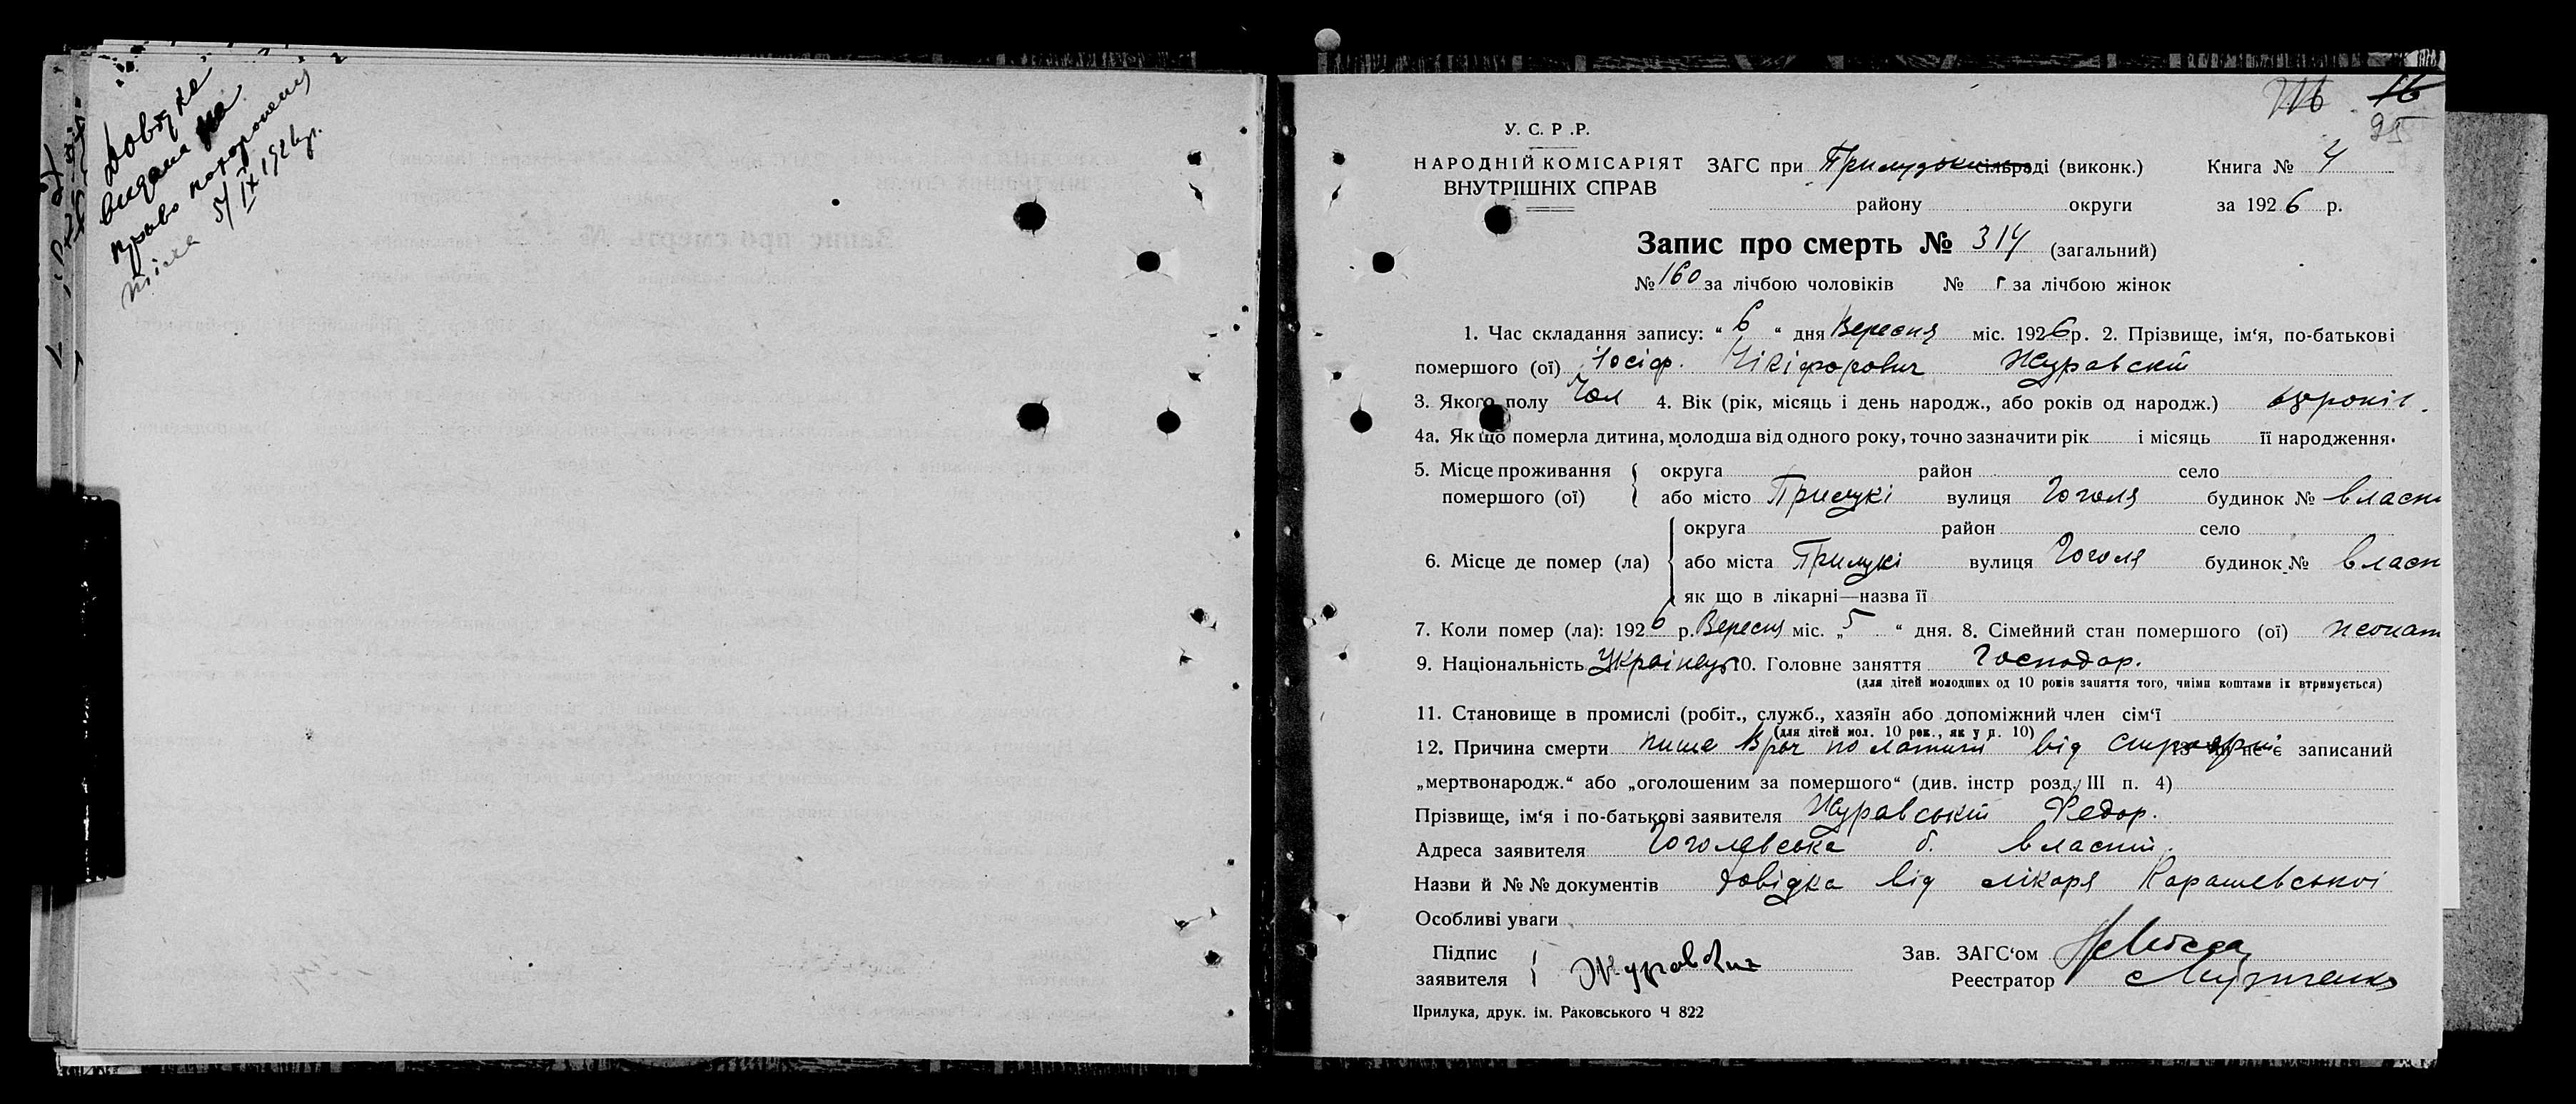 Довідка
видана на
право похорон
тіла 5/IX 1926 р.
16
95
У. С. Р. Р.
НАРОДНІЙ КОМІСАРІЯТ
ВНУТРІШНІХ СПРАВ
ЗАГС при Прилуцьк сільраді (виконк.) Книга № 4
району округи за 1926 р.
Запис про смерть № 314 (загальний)
№ 160 за лічбою чоловіків № г за лічбою жінок
1. Час складання запису: “ 6 “ дня Вересня міс. 1926 р. 2. Прізвище, ім‘я, по-батькові
помершого (ої) Іосіф. Нікіфорович Журавскій
3. Якого полу Чол 4. Вік (рік, місяць і день народж., або років од народж.)
4а. Якщо померла дитина, молодша від одного року, точно зазначити рік і місяць її народження.
5. Місце проживання помершого (ої) { округа район село
або місто Прилукі вулиця Гоголя будинок № власн
6. Місце де помер (ла) { округа район село
або міста Прилукі вулиця Гоголя будинок № власн
як що в лікарні—назва її
7. Коли помер (ла): 1926 р. Вересня міс. „ 5 “ дня. 8. Сімейний стан помершого (ої) жонат
9. Національність Українець 10. Головне заняття Господар.
(для дітей молодших од 10 років заняття того, чиїми коштами їх втримується)
11. Становище в промислі (робіт., служб., хазяїн або допоміжний член сім‘ї
(для дітей мол. 10 рок., як у п. 10)
12. Причина смерти пише Врач по латині від 13 чи не є записаний
„мертвонародж.“ або „оголошеним за помершого“ (див. інстр розд. III п. 4)
Прізвище, ім‘я і по-батькові заявителя Журавській Федор.
Адреса заявителя Гоголевська б. власний.
Назви й №№ документів довідка від лікаря Карашевської
Особливі уваги
Підпис
заявителя { Журавский
Зав. ЗАГС‘ом
Реестратор
Прилука, друк. ім. Раковського Ч 822